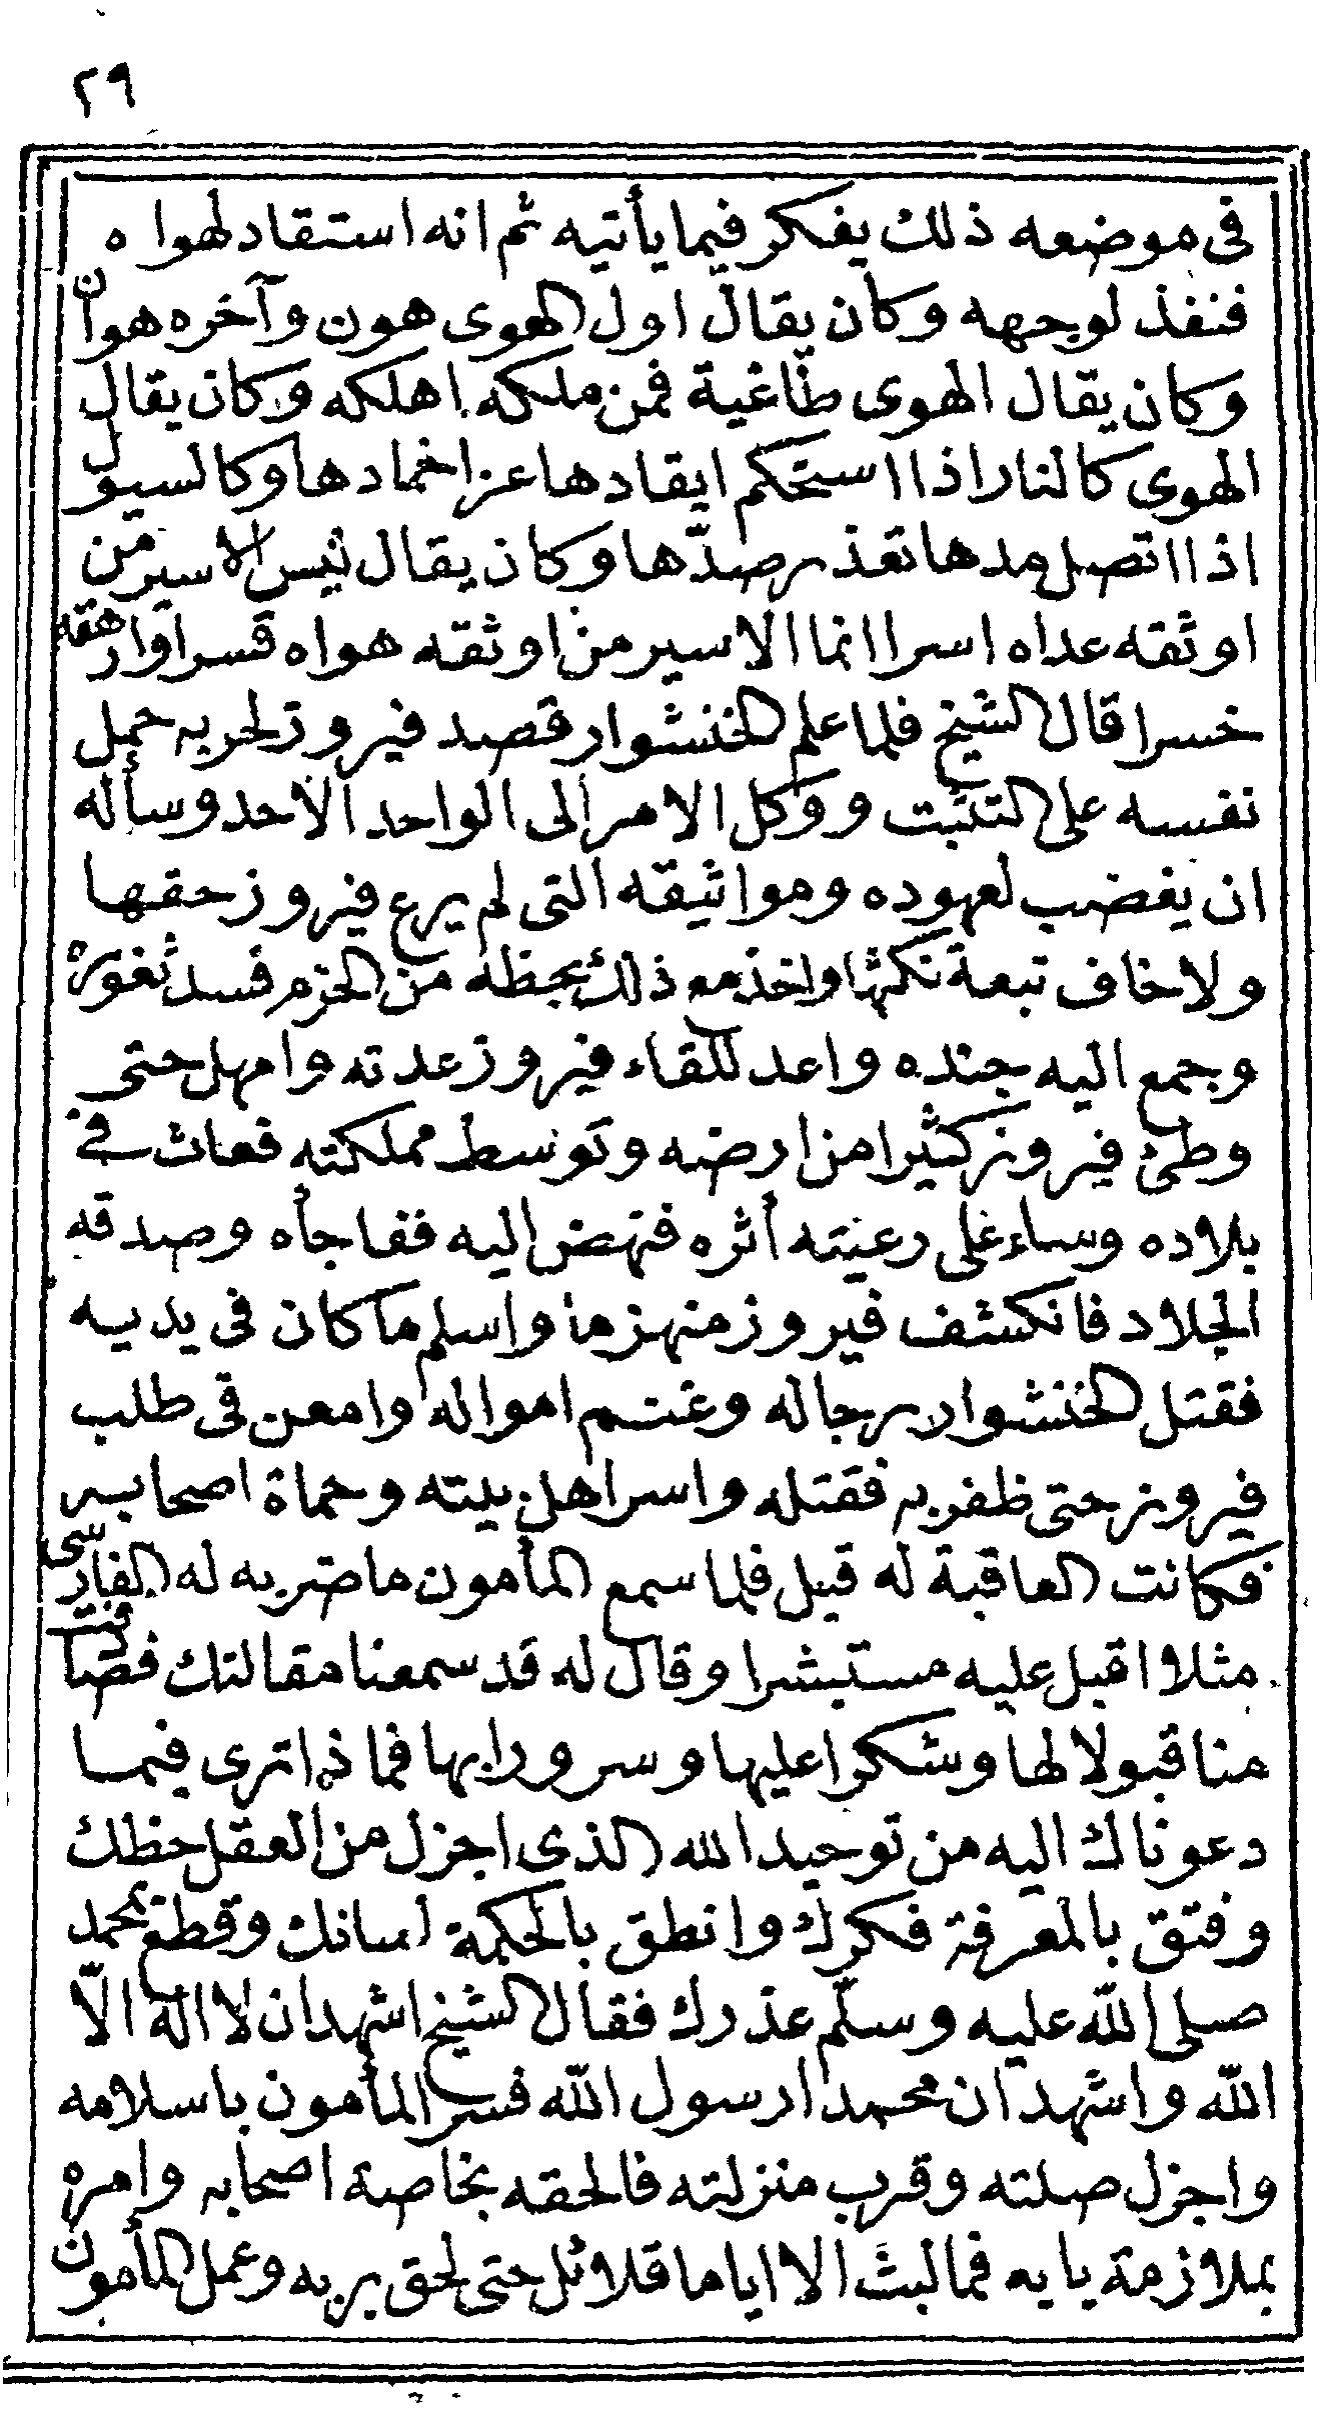 ٢٩
فى موضعه ذلك يفكر فيما يأتيه ثم انه استقاد لهواه
فنفذ لوجهه وكان يقال اول الهوى هون وآخره هوان
وكان يقال الهوى طاغية فمن ملكه اهلكه وكان يقال
الهوى كالنار اذا استحكم ايقادها عز اخمادها وكالسيول
اذا اتصل مدها تعذر صدّها وكان يقال ليس الاسير من
اوثقه عداه اسرا انما الاسير من اوثقه هواه قسرا وارهقه
خسرا قال الشيخ فلما علم الخنشوار قصد فيروز لحربه حمل
نفسه على التثبت ووكل الامر الى الواحد الاحد وسأله
ان يغضب لعهوده ومواثيقه التى لم يرع فيروز حقها
ولا خاف تبعة نكثها واخذ مع ذلك بحظه من الحزم فسد ثغوره
وجمع اليه جنده واعد للقاء فيروز عدته وامهل حتى
وطئ فيروز كثيرا من ارضه وتوسط مملكته فعاث فى
بلاده وساء على رعيته أثره فنهض اليه ففاجأه وصدقه
الجلاد فانكشف فيروز منهزما واسلم ما كان فى يديه
فقتل الخنشوار رجاله وغنم امواله وامعن فى طلب
فيروز حتى ظفر به فقتله واسر اهل بيته وحماة اصحابه
فكانت العاقبة له قبل فلما سمع المأمون ما ضربه له الفارسى
مثلا اقبل عليه مستبشرا وقال له قد سمعنا مقالتك فصادفت
منا قبولا لها وشكرا عليها وسرورا بها فماذا ترى فيما
دعوناك اليه من توحيد الله الذى اجزل من العقل حظك
وفتق بالمعرفة فكرك وانطق بالحكمة لسانك وقطع بمحمد
صلى الله عليه وسلّم عذرك فقال الشيخ اشهد ان لا اله الّا
الله واشهد ان محمدا رسول الله فسر المأمون باسلامه
واجزل صلته وقرب منزلته فالحقه بخاصة اصحابه وامره
بملازمة بابه فما لبث الا اياما قلائل حتى لحق بربه وعمل المأمون